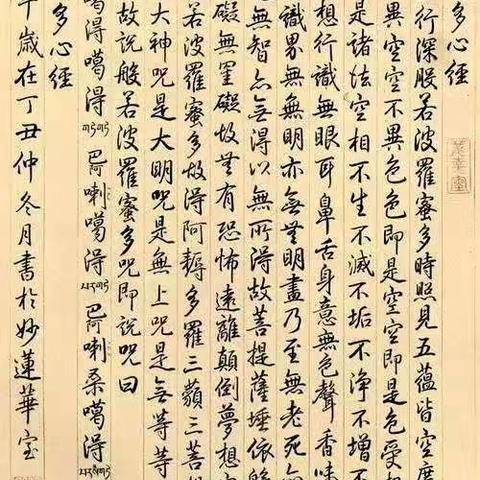 多心經
行深般若波羅蜜多時照見五蘊皆空度
異空空不異色色即是空空即是色受
是諸法空相不生不滅不垢不淨不增不
想行識無眼耳鼻舌身意無色聲香味
識界無無明亦無無明盡乃至無老死
無智亦無得以無所得故菩提薩埵依般
礙無罣礙故無有恐怖遠離顛倒夢想
若波羅蜜多故得阿耨多羅三藐三菩提
大神咒是大明咒是無上咒是無等等
故說般若波羅蜜多咒即說咒曰
噶得噶得巴阿喇噶得巴阿喇桑噶得
歲在丁丑仲冬月書於妙蓮華室